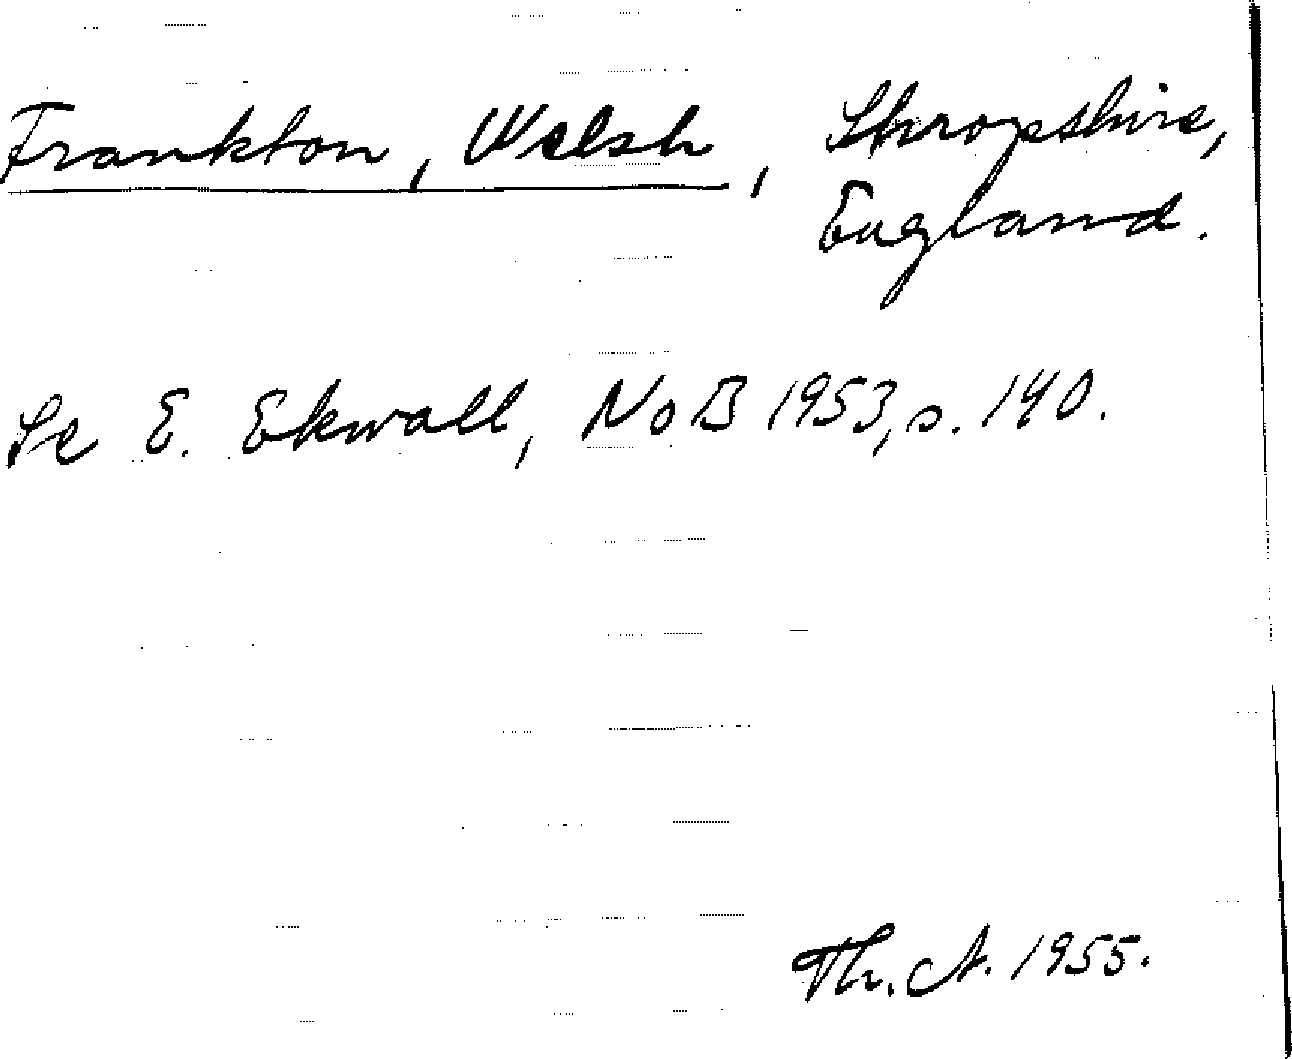 Frankton, Welsh, Shropshire,
England.
Se E. Ekwall, NoB 1953, s. 140.
Th. A. 1955.